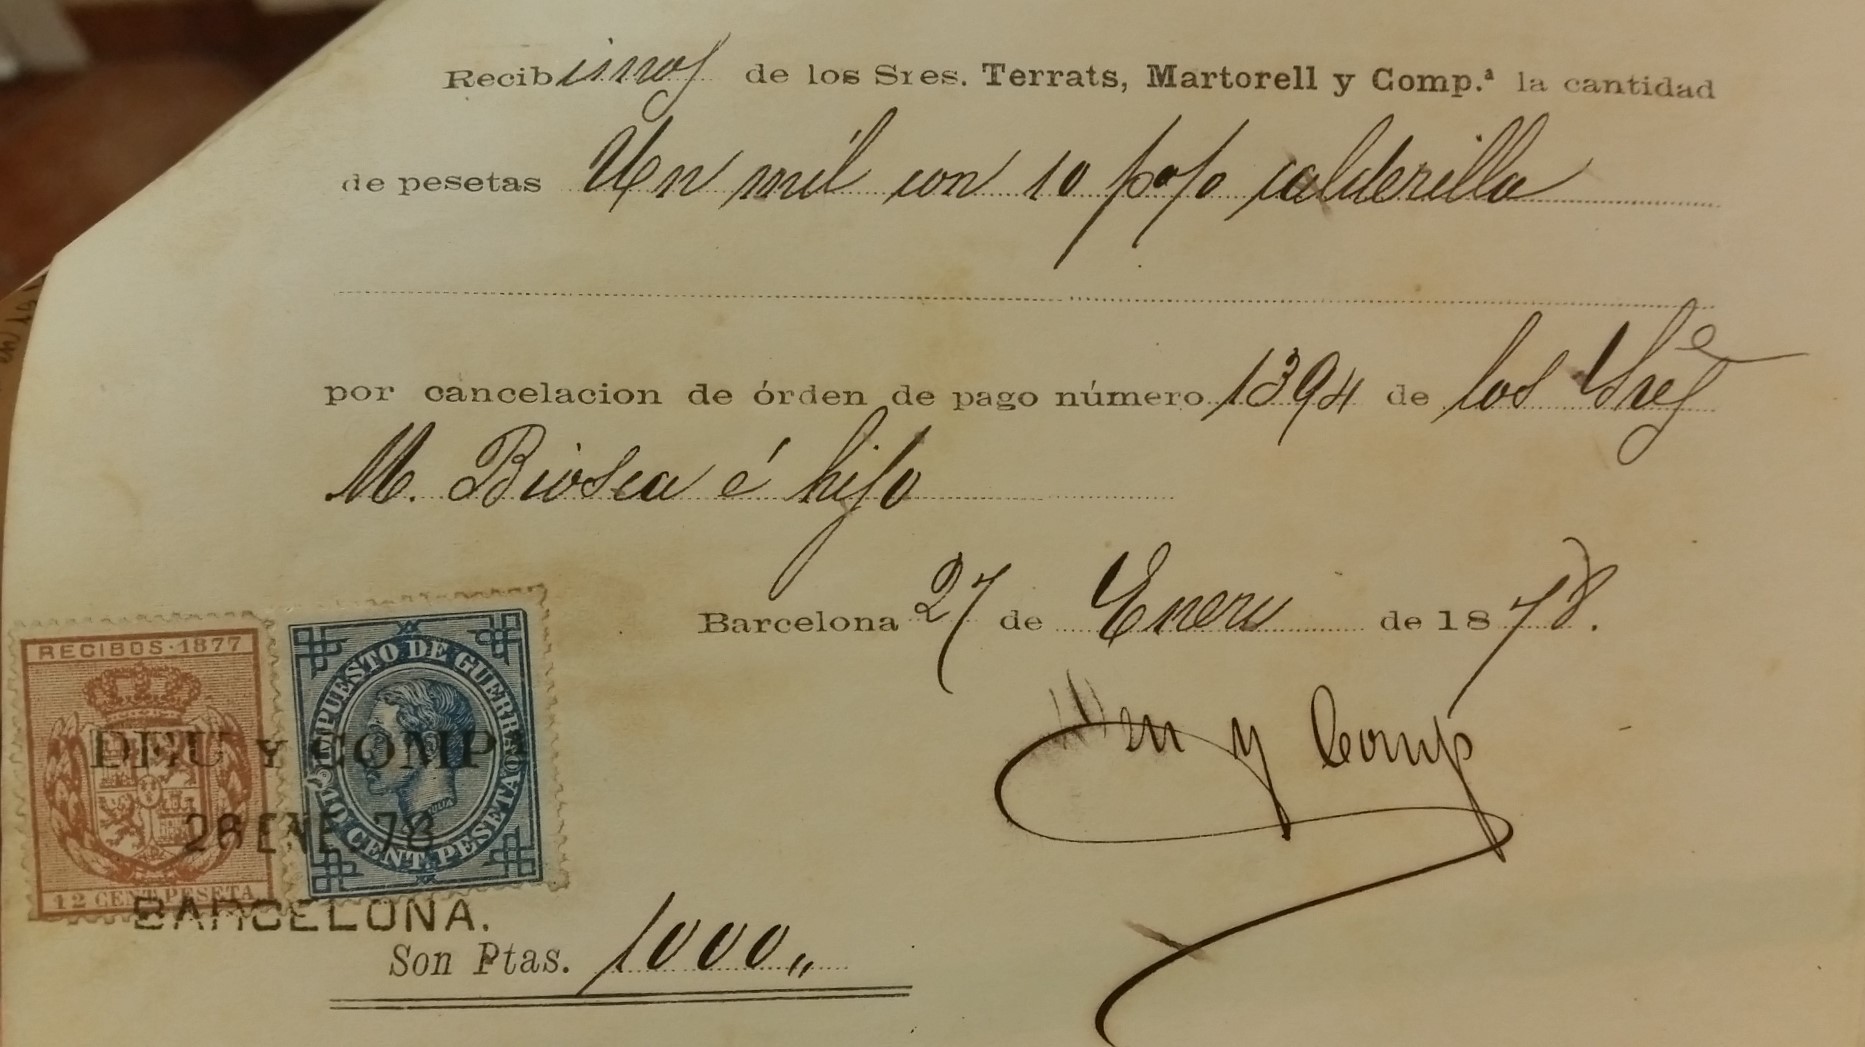 Recibimos de los Sres. Terrats, Martorell y Comp.ª la cantidad
de pesetas Un mil con 10 p% calderilla
por cancelacion de órden de pago número 1394 de los Sres
M. Biosca é hijo
Barcelona 27 de Enero de 1878.
RECIBOS·1877
12 CENT. PESETA
IMPUESTO DE GUERRA
10 CENT PESETA
JULIA
DEU Y COMP
26 ENE. 78
BARCELONA.
Deu y Comp
Son Ptas. 1000,,